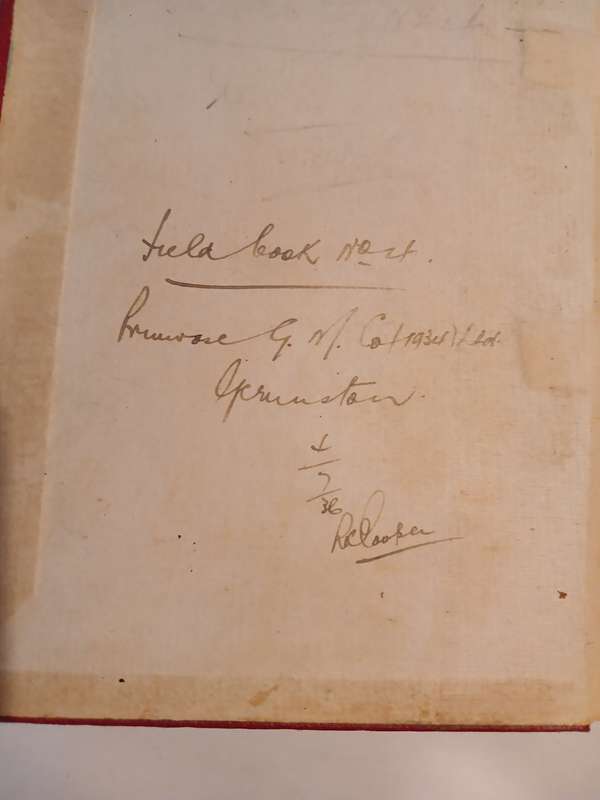 Field Book No 4.
Primrose G. M. Co (1934) Ltd.
Germiston.
7
36
R.C. Cooper